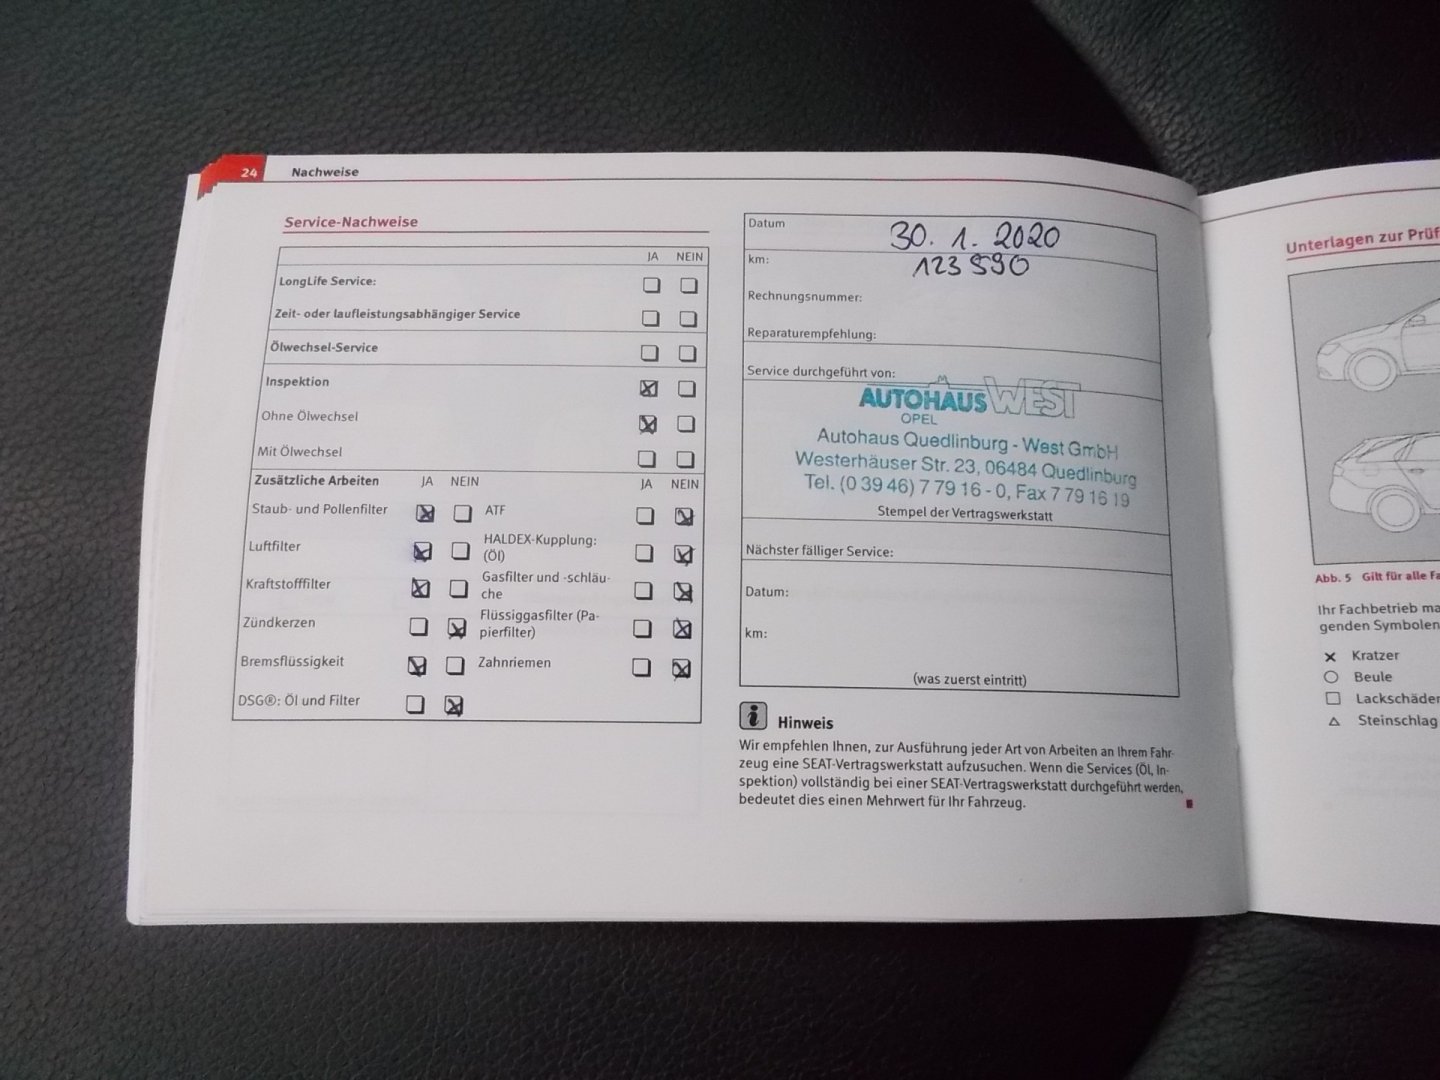 24 Nachweise
Service-Nachweise
JA NEIN
LongLife Service:
Zeit- oder laufleistungsabhängiger Service
Ölwechsel-Service
Inspektion
Ohne Ölwechsel
Mit Ölwechsel
Zusätzliche Arbeiten JA NEIN JA NEIN
Staub- und Pollenfilter ATF
Luftfilter HALDEX-Kupplung:
(Öl)
Kraftstofffilter Gasfilter und -schläu-
che
Zündkerzen Flüssiggasfilter (Pa-
pierfilter)
Bremsflüssigkeit Zahnriemen
DSG®: Öl und Filter
Datum 30. 1. 2020
km: 123 590
Rechnungsnummer:
Reparaturempfehlung:
Service durchgeführt von:
AUTOHAUS WEST
OPEL
Autohaus Quedlinburg - West GmbH
Westerhäuser Str. 23, 06484 Quedlinburg
Tel. (0 39 46) 7 79 16 - 0, Fax 7 79 16 19
Stempel der Vertragswerkstatt
Nächster fälliger Service:
Datum:
km:
(was zuerst eintritt)
i Hinweis
Wir empfehlen Ihnen, zur Ausführung jeder Art von Arbeiten an Ihrem Fahr-
zeug eine SEAT-Vertragswerkstatt aufzusuchen. Wenn die Services (Öl, In-
spektion) vollständig bei einer SEAT-Vertragswerkstatt durchgeführt werden,
bedeutet dies einen Mehrwert für Ihr Fahrzeug.
Unterlagen zur Prüf
Abb. 5 Gilt für alle Fa
Ihr Fachbetrieb ma
genden Symbolen
Kratzer
Beule
Lackschäden
Steinschlag